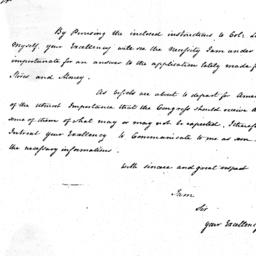 By Perusing the inclosed instructions to Col:
myself, your Excellency will see the necessity I am under
importunate for an answer to the application lately made f
Stores and Money.
As vessels are about to depart for Amer
of the utmost Importance that the Congress should receive
some of them of what may or may not be expected. I therefo
Intreat your Excellency to Communicate to me as soon
the necessary informations.
With sincere and great respect
I am
Sir
your Excellency